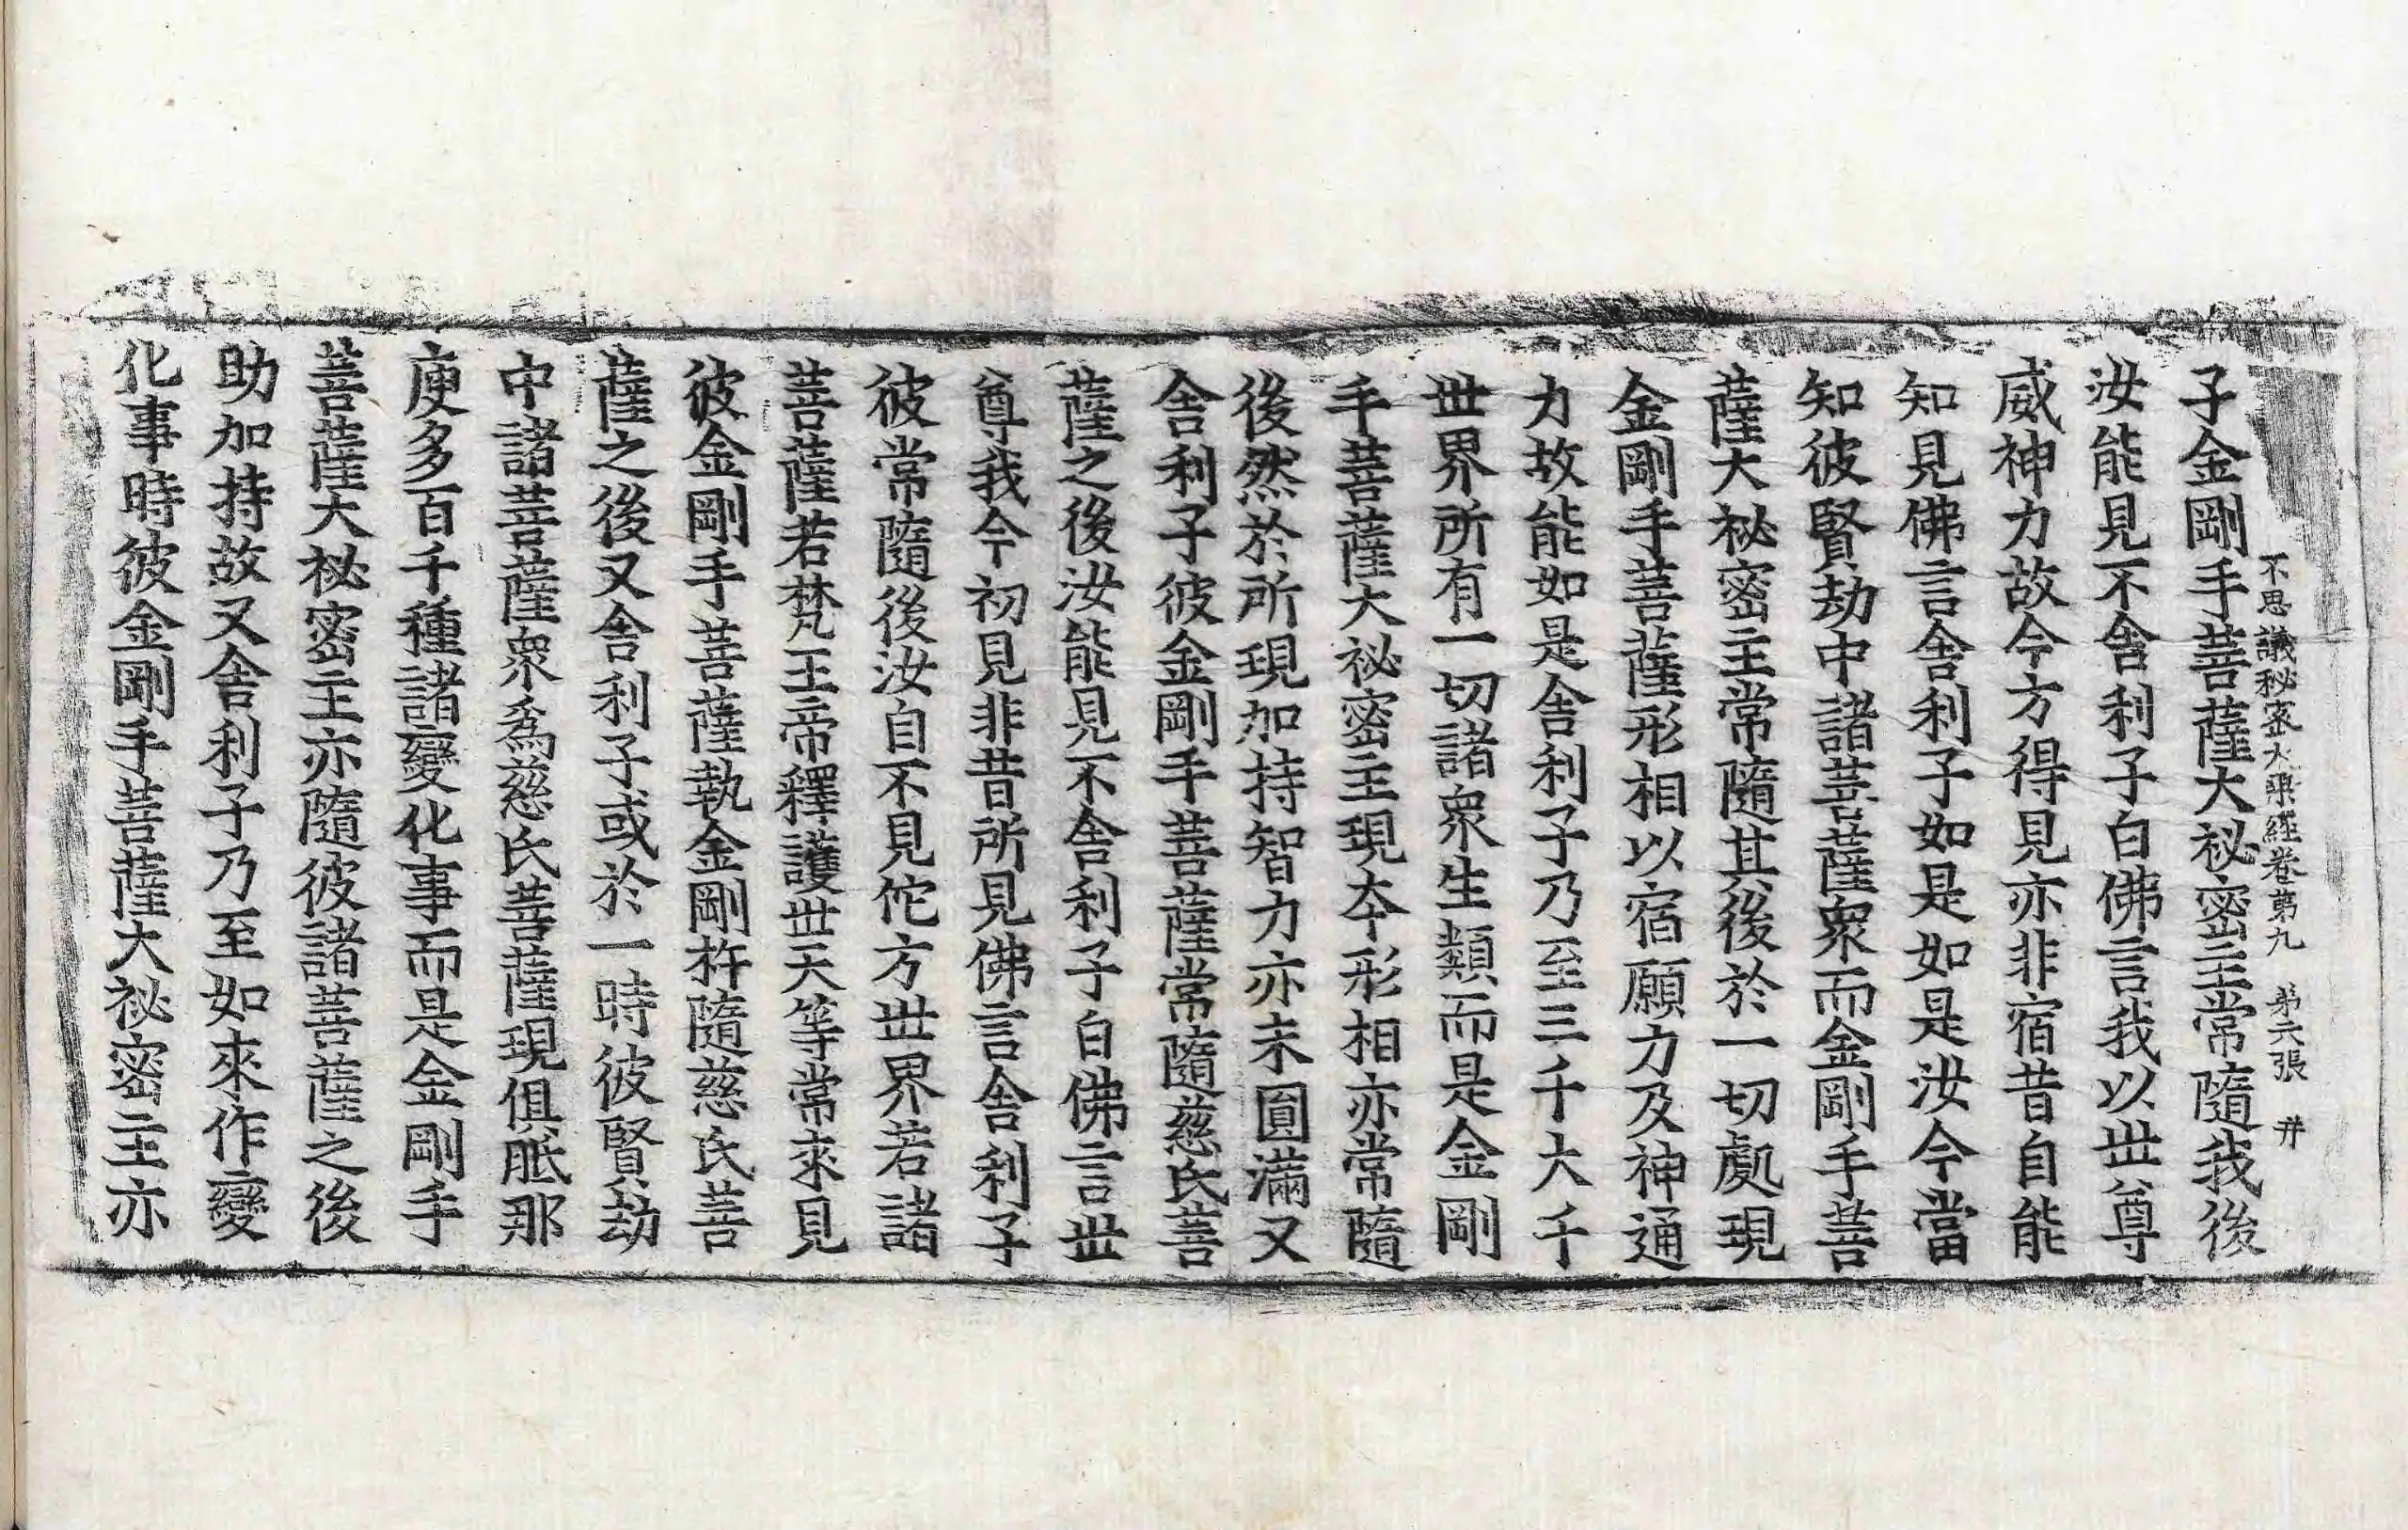 不思議秘密大乘經卷第九　第六張　井
子金剛手菩薩大祕密主常隨我後
汝能見不舍利子白佛言我以世尊
威神力故今方得見亦非宿昔自能
知見佛言舍利子如是如是汝今當
知彼賢劫中諸菩薩衆而金剛手菩
薩大祕密主常隨其後於一切處現
金剛手菩薩形相以宿願力及神通
力故能如是舍利子乃至三千大千
世界所有一切諸衆生類而是金剛
手菩薩大祕密主現夲形相亦常隨
後然於所現加持智力亦未圎滿又
舍利子彼金剛手菩薩常隨慈氏菩
薩之後汝能見不舍利子白佛言世
尊我今初見非昔所見佛言舍利子
彼常隨後汝自不見佗方世界若諸
菩薩若梵王帝釋護世天等常來見
彼金剛手菩薩執金剛杵隨慈氏菩
薩之後又舍利子或於一時彼賢劫
中諸菩薩衆爲慈氏菩薩現俱胝那
庾多百千種諸變化事而是金剛手
菩薩大祕密主亦隨彼諸菩薩之後
助加持故又舍利子乃至如來作變
化事時彼金剛手菩薩大祕密主亦